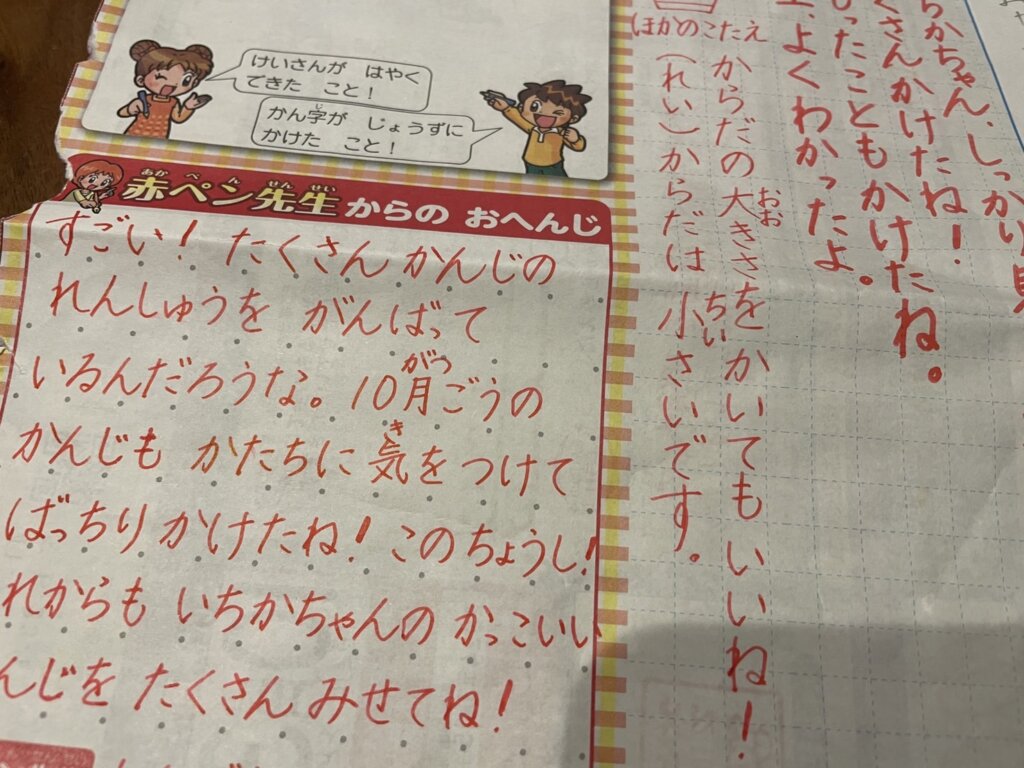 けいさんが はやく
できた こと！
かん字が じょうずに
かけた こと！
赤ペン先生からの おへんじ
すごい！ たくさん かんじの
れんしゅうを がんばって
いるんだろうな。10月ごうの
かんじも かたちに 気を つけて
ばっちり かけたね！ このちょうし！
れからも いちかちゃんの かっこいい
んじを たくさん みせてね！
かちゃん、しっかり見
くさんかけたね！
ったこともかけたね。
、よくわかったよ。
ほかのこたえ
からだの大きさを かいても いいね！
（れい）からだは 小さいです。